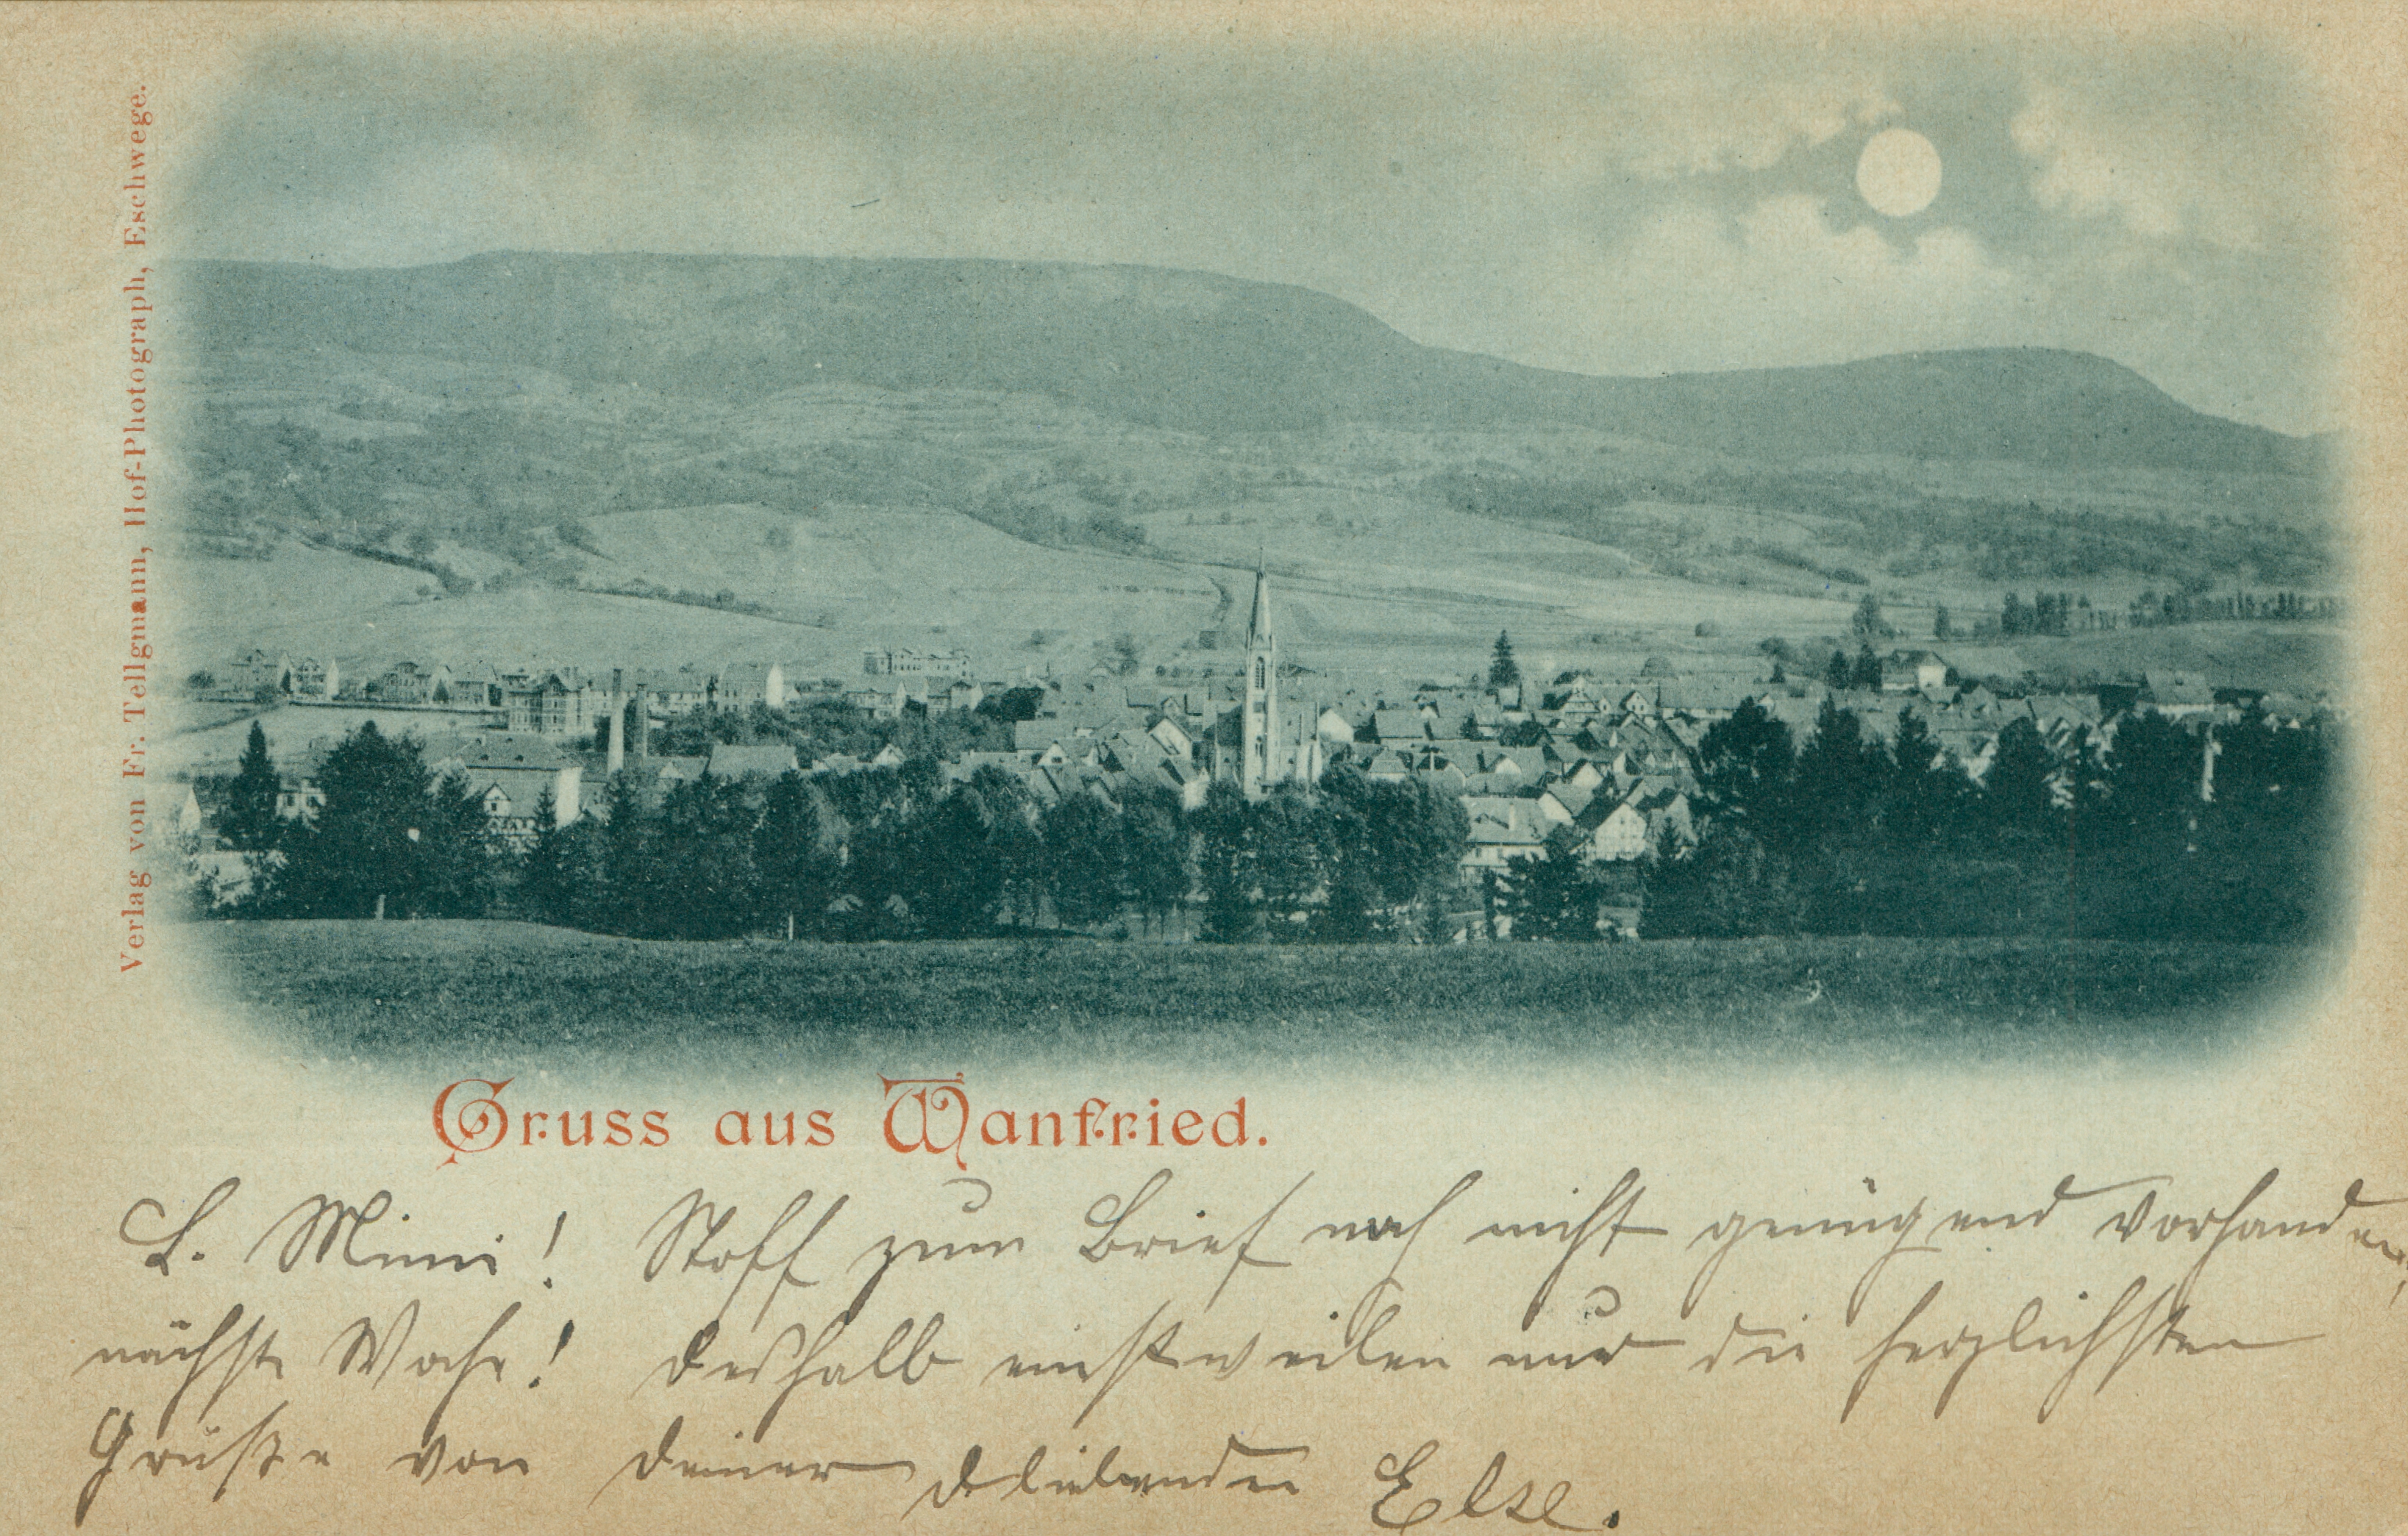 Verlag von Fr. Tellgmann, Hof-Photograph, Eschwege.
Gruss aus Wanfried.
L. Mimi! Stoff zum Brief noch nicht genügend vorhanden,
nächste Woche! Deshalb einstweilen nur die herzlichsten
Grüße von Deiner Dich liebenden Else.